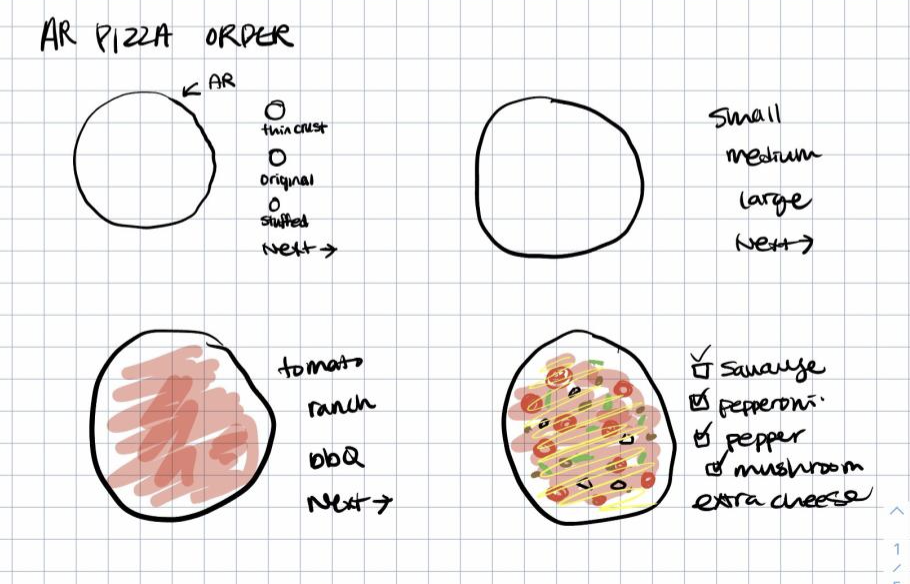 AR PIZZA ORDER
AR
thin crust
original
stuffed
Next →
small
medium
large
Next →
tomato
ranch
bbQ
Next →
Sausauge
pepperoni
pepper
mushroom
extra cheese
1
/